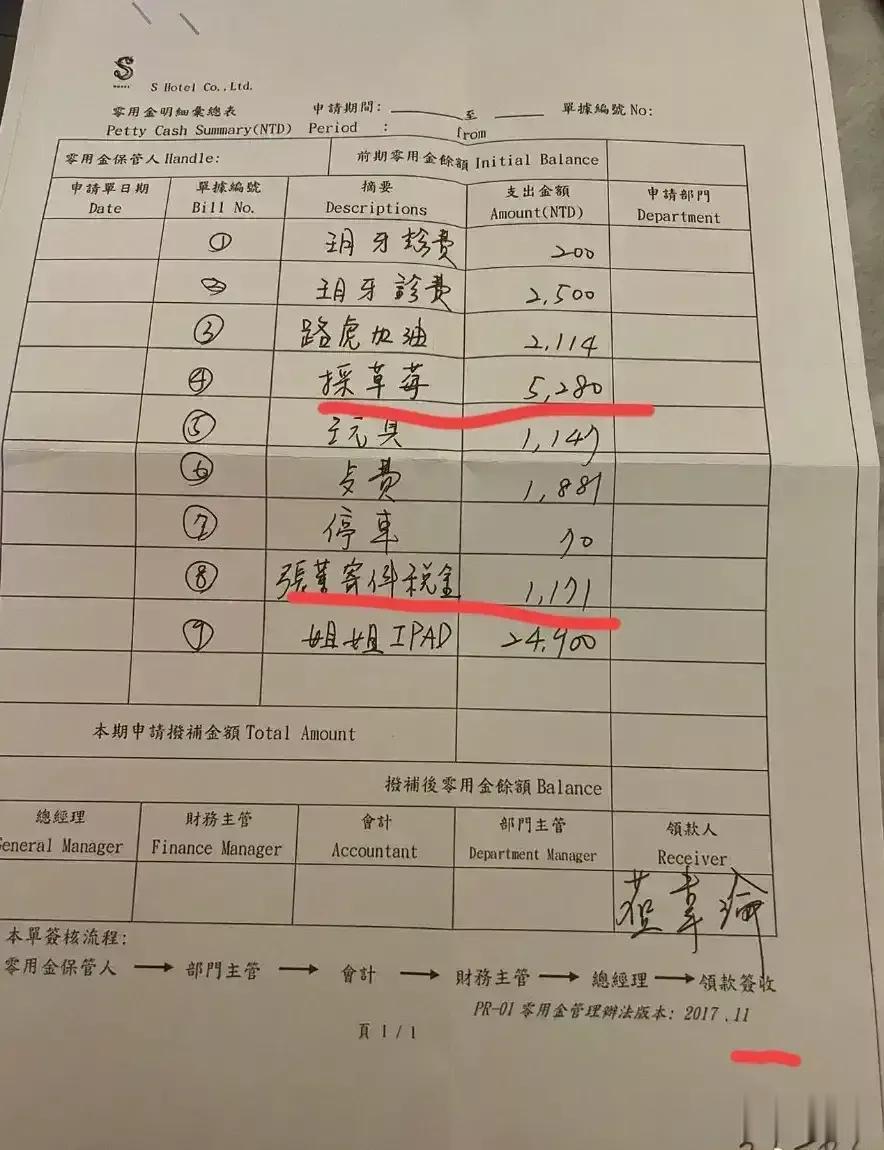 S
S Hotel Co.,Ltd.
零用金明細彙總表 申請期間: 至 單據編號 No:
Petty Cash Summary(NTD) Period : from
零用金保管人 Handle: 前期零用金餘額 Initial Balance
申請單日期 單據編號 摘要 支出金額 申請部門
Date Bill No. Descriptions Amount(NTD) Department
① 玥牙診費 200
② 玥牙診費 2,500
③ 路虎加油 2,114
④ 採草莓 5,280
⑤ 玩具 1,147
⑥ 費 1,881
⑦ 停車 70
⑧ 張 寄件稅金 1,171
⑨ 姐姐IPAD 24,900
本期申請撥補金額 Total Amount
撥補後零用金餘額 Balance
總經理 財務主管 會計 部門主管 領款人
eneral Manager Finance Manager Accountant Department Manager Receiver
本單簽核流程:
零用金保管人 → 部門主管 → 會計 → 財務主管 → 總經理 → 領款簽收
PR-01 零用金管理辦法版本: 2017.11
頁 1 / 1